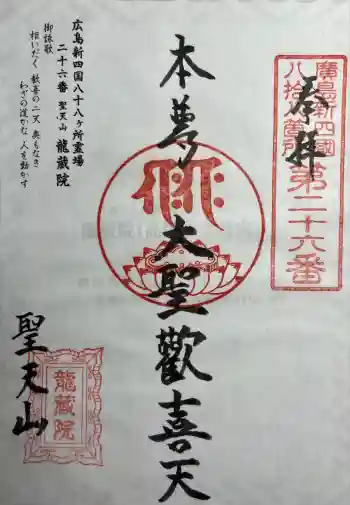 奉拝
廣島新四國
八拾八箇所
第二十六番
本尊 大聖歡喜天
聖天山
龍蔵院
広島新四国八十八ヶ所霊場
二十六番 聖天山 龍蔵院
御詠歌
相いだく 歓喜の二天 奥もなき
わざの道かな 人を動かす